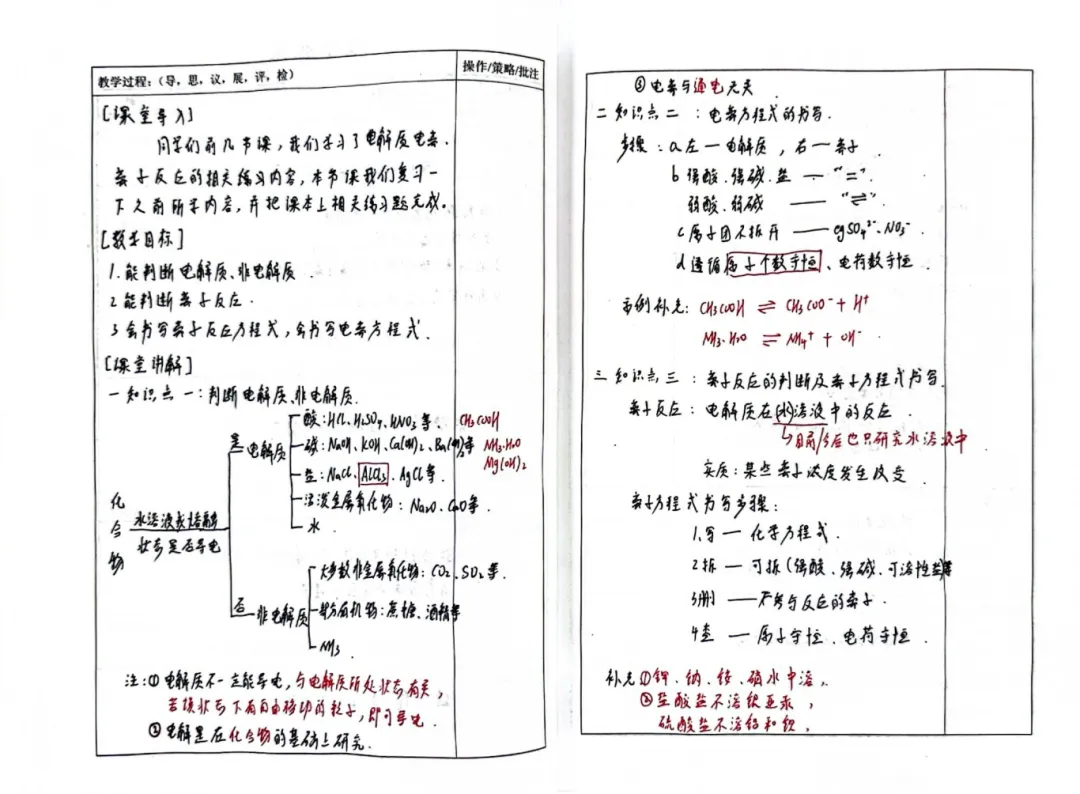 教学过程:(导,思,议,展,评,检)
操作/策略/批注
[课堂导入]
同学们前几节课,我们学习了电解质电离.
离子反应的相关练习内容,本节课我们复习一
下之前所学内容,并把课本上相关练习题完成。
[教学目标]
1.能判断电解质、非电解质.
2 能判断离子反应.
3 会书写离子反应方程式,会书写电离方程式.
[课堂讲解]
一 知识点一:判断电解质、非电解质.
化合物
水溶液或熔融
状态是否导电
是 电解质
酸:HCl、H₂SO₄、HNO₃等. CH₃COOH
碱:NaOH、KOH、Ca(OH)₂、Ba(OH)₂等 NH₃·H₂O
Mg(OH)₂
盐:NaCl、AlCl₃、AgCl等.
活泼金属氧化物:Na₂O、CaO等.
水.
否 非电解质
大多数非金属氧化物:CO₂、SO₂等.
有机物:蔗糖、酒精等
NH₃.
注:① 电解质不一定能导电,与电解质所处状态有关,
若换状态下有自由移动的粒子,即可导电.
② 电解是在化合物的基础上研究.
③ 电离与通电无关
二 知识点二:电离方程式的书写.
步骤:a 左一电解质,右一离子.
b 强酸、强碱、盐 — "=".
弱酸、弱碱 —— "⇌".
c 原子团不拆开 —— eg SO₄²⁻、NO₃⁻
d 遵循原子个数守恒、电荷数守恒.
示例补充:CH₃COOH ⇌ CH₃COO⁻ + H⁺
NH₃·H₂O ⇌ NH₄⁺ + OH⁻
三 知识点三:离子反应的判断及离子方程式书写.
离子反应:电解质在(水)溶液中的反应.
↳目前/今后也只研究水溶液中
实质:某些离子浓度发生改变
离子方程式书写步骤:
1.写 — 化学方程式.
2拆 — 可拆(强酸、强碱、可溶性盐)等
3删 —— 不参与反应的离子.
4查 — 原子守恒、电荷守恒.
补充①钾、钠、铵、硝水中溶,
②盐酸盐不溶银亚汞,
硫酸盐不溶铅和钡,